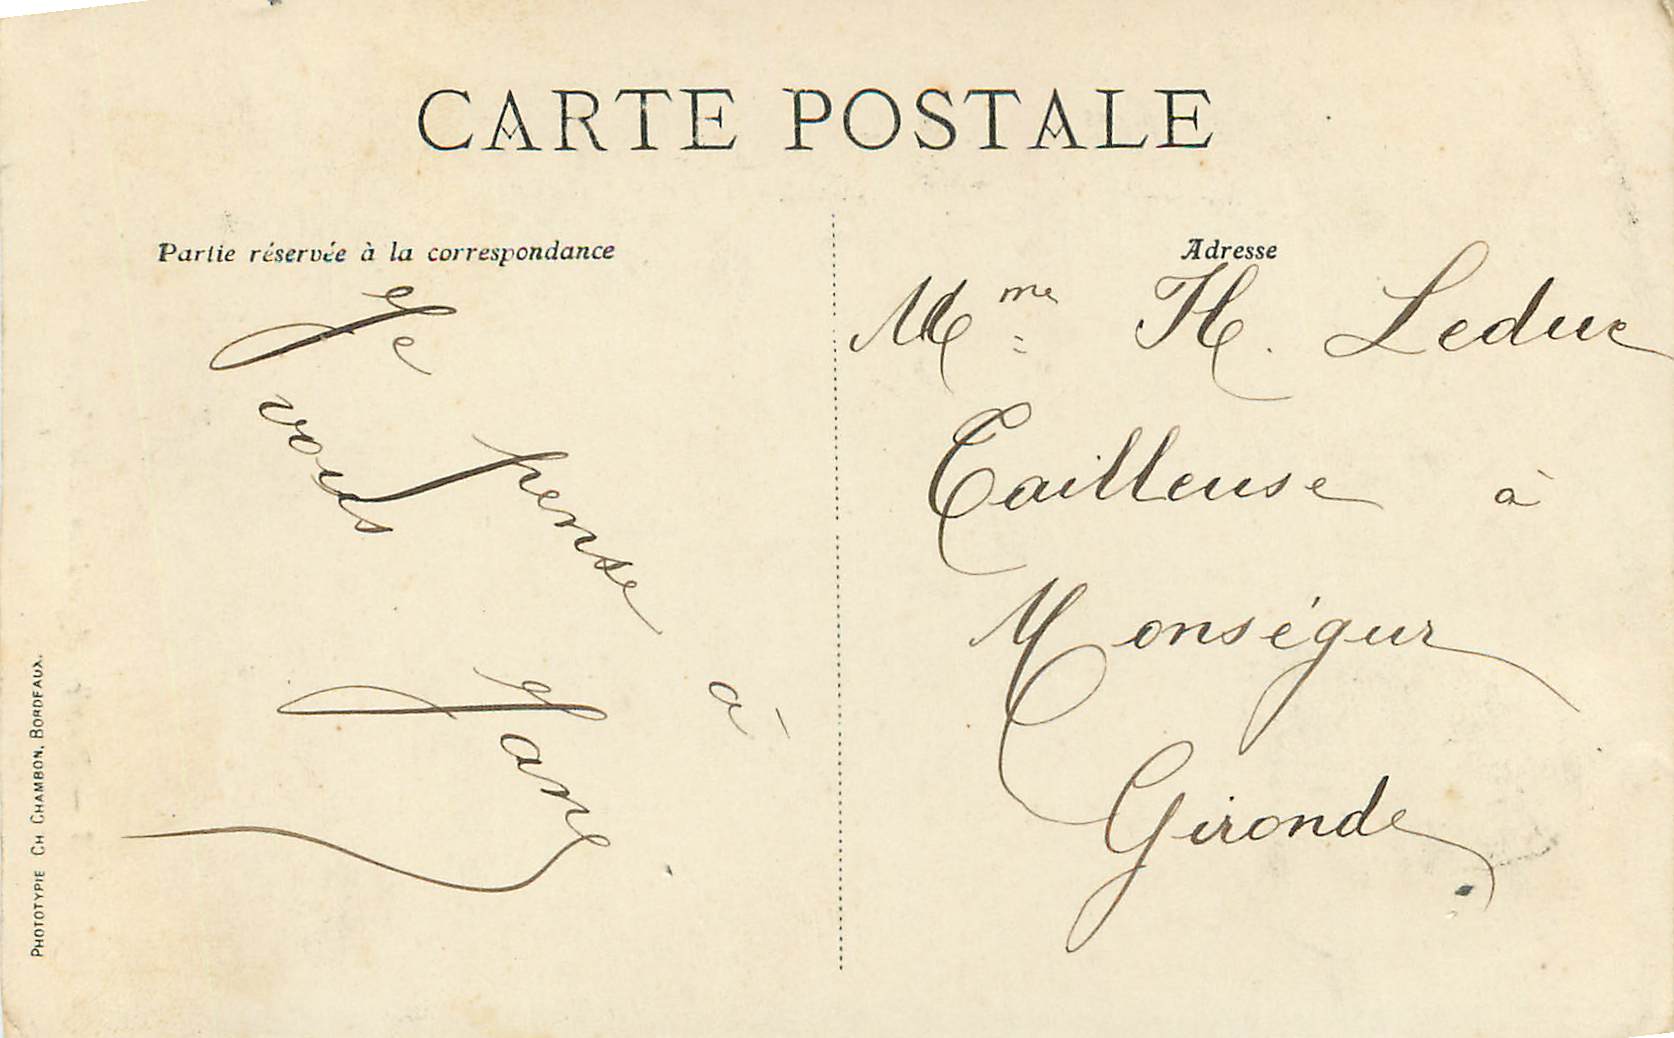 CARTE POSTALE
Partie réservée à la correspondance
Je pense à
vous
Jane
Adresse
Mme H. Leduc
Tailleuse à
Monségur
Gironde
PHOTOTYPIE CH. CHAMBON, BORDEAUX.